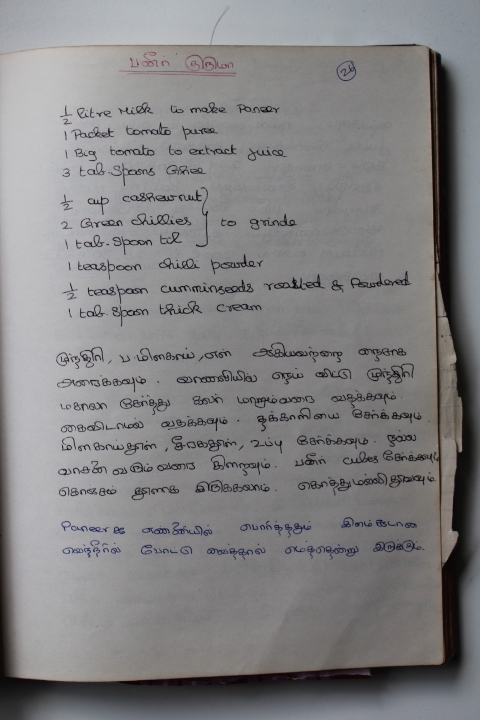 பனீர் குருமா
26
1/2 litre Milk to make Paneer
1 Packet tomato puree
1 Big tomato to extract juice
3 tab-Spoons Ghee
1/2 cup cashewnut
2 Green chillies } to grinde
1 tab-Spoon til
1 teaspoon chilli powder
1/2 teaspoon cumminseeds roasted & Powdered
1 tab-Spoon thick cream
முந்திரி, ப.மிளகாய், எள் ஆகியவற்றை நைசாக
அரைக்கவும். வாணலியில் நெய் விட்டு முந்திரி
மசாலா சேர்த்து கலர் மாறும்வரை வதக்கவும்.
கைவிடாமல் வதக்கவும். தக்காளியை சேர்க்கவும்
மிளகாய்தூள், சீரகதூள், உப்பு சேர்க்கவும். நல்ல
வாசனை வரும்வரை கிளறவும். பனீர் cubes சேர்க்கவும்
கொஞ்சம் தூளாக இருக்கலாம். கொத்துமல்லி தூவவும்
Paneer ஐ எண்ணெயில் பொரித்ததும் இளம்சூடான
வெந்நீரில் போட்டு வைத்தால் மெத்தென்று இருக்கும்.